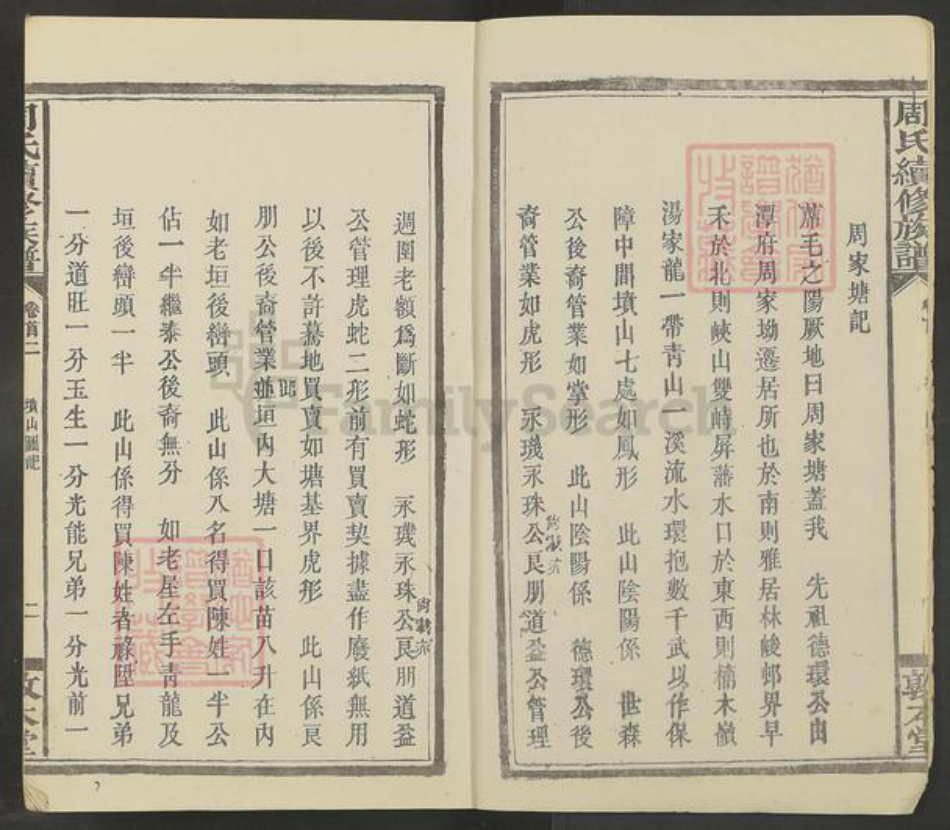 周氏續修族譜
周家塘記
蓆毛之陽厥地曰周家塘蓋我 先祖德環公由
潭府周家坳遷居所也於南則雅居林峻邨界早
禾於北則峽山雙峙屏藩水口於東西則楠木嶺
湯家龍一帶青山一溪流水環抱數千武以作保
障中間墳山七處如鳳形 此山陰陽係 世森
公後裔管業如掌形 此山陰陽係 德環公後
裔管業如虎形 永璣永珠公良朋道益公管理
敦本堂
週圍老額爲斷如蛇形 永璣永珠公良朋道益
公管理虎蛇二形前有買賣契據盡作廢紙無用
以後不許驀地買賣如塘基界虎形 此山係良
朋公後裔管業並垣內大塘一口該苗八升在內
如老垣後巒頭 此山係八名得買陳姓一半公
佔一半繼泰公後裔無分 如老屋左手靑龍及
垣後巒頭一半 此山係得買陳姓者祿陞兄弟
一分道旺一分玉生一分光能兄弟一分光前一
周氏續修族譜
卷首二
墳山圖記
二
敦本堂
FamilySearch